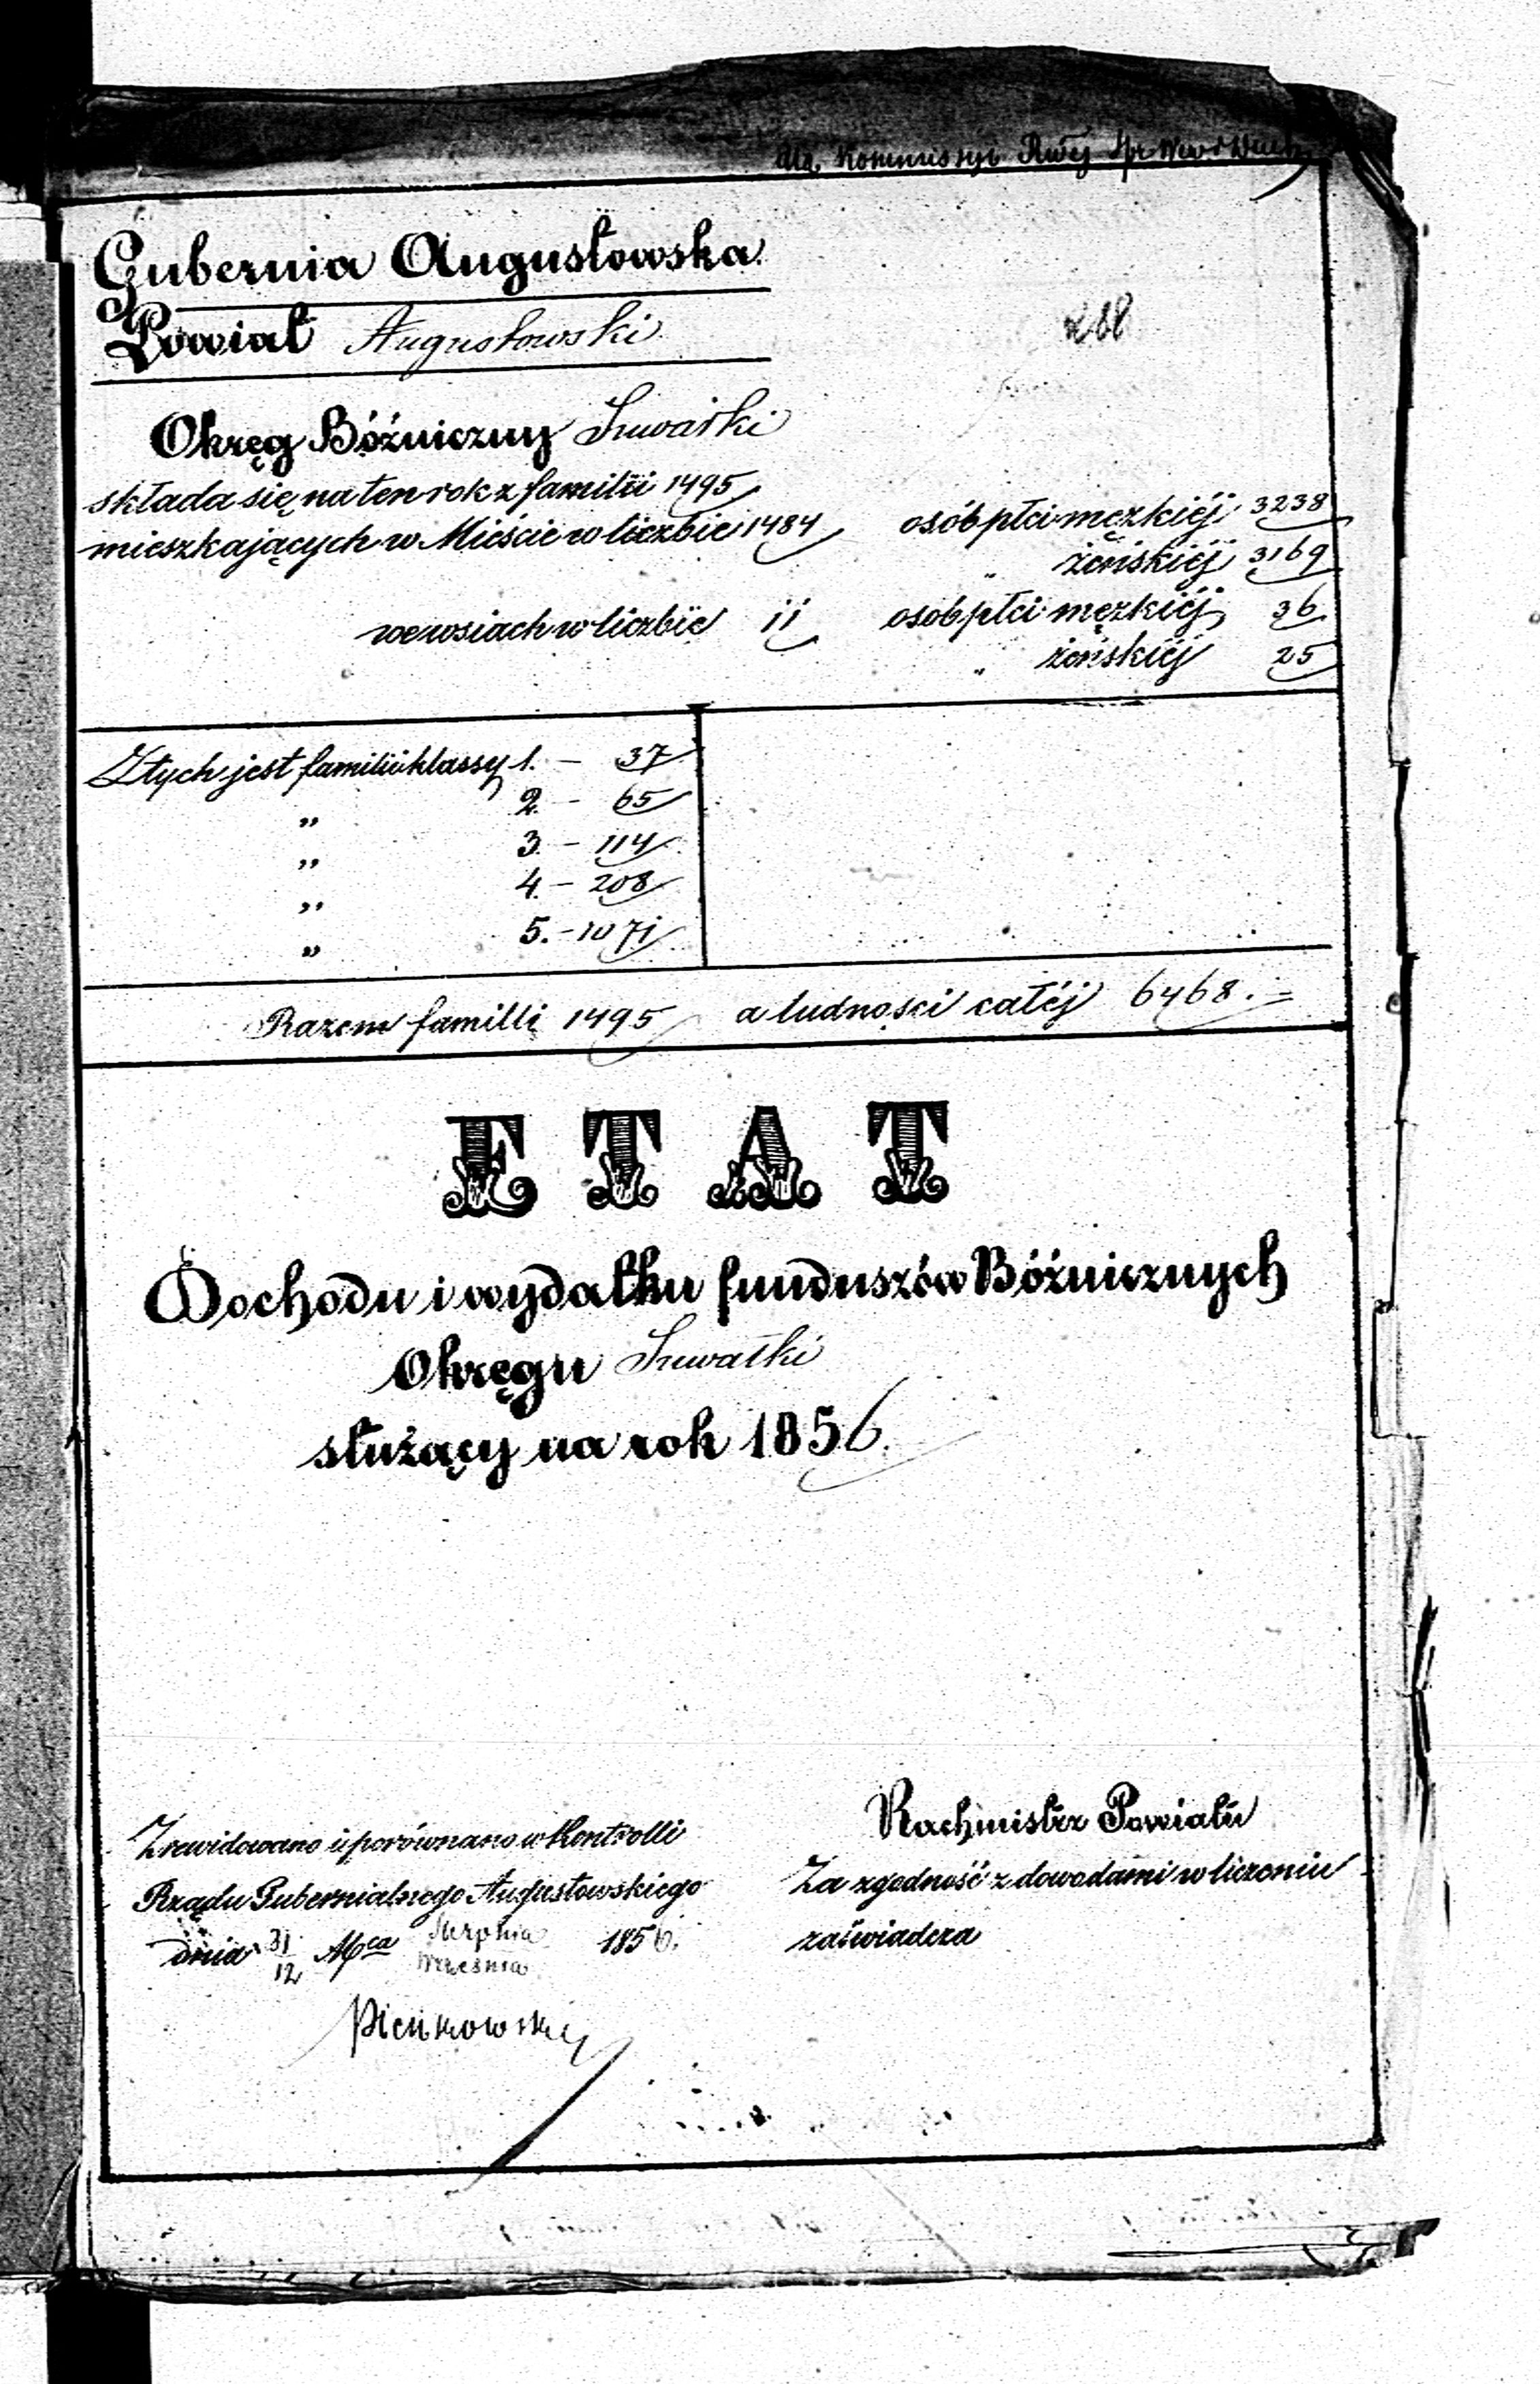 Dla Kommissyi Rwej Spr. Wew. i Duch.
Gubernia Augustowska
Powiat Augustowski
288
Okręg Bóźniczny Suwałki
składa się na ten rok z familii 1495
mieszkających w Mieście w liczbie 1484 osób płci męzkiéj 3238
„ żeńskiéj 3169
we wsiach w liczbie 11 osób płci męzkiéj 36
„ żeńskiéj 25
Z tych jest familii klassy 1. – 37
„ 2. – 65
„ 3. – 114
„ 4. – 208
„ 5. – 1071
Razem familli 1495 a ludności całéj 6468. =
ETAT
Dochodu i wydatku funduszów Bóźnicznych
Okręgu Suwałki
służący na rok 1856.
Zrewidowano i porównano w Kontrolli
Rządu Gubernialnego Augustowskiego
dnia 31/12 Mca Sierpnia/Września 1856.
Pieńkowski
Rachmistrz Powiatu
Za zgodność z dowodami w liczeniu
zaświadcza